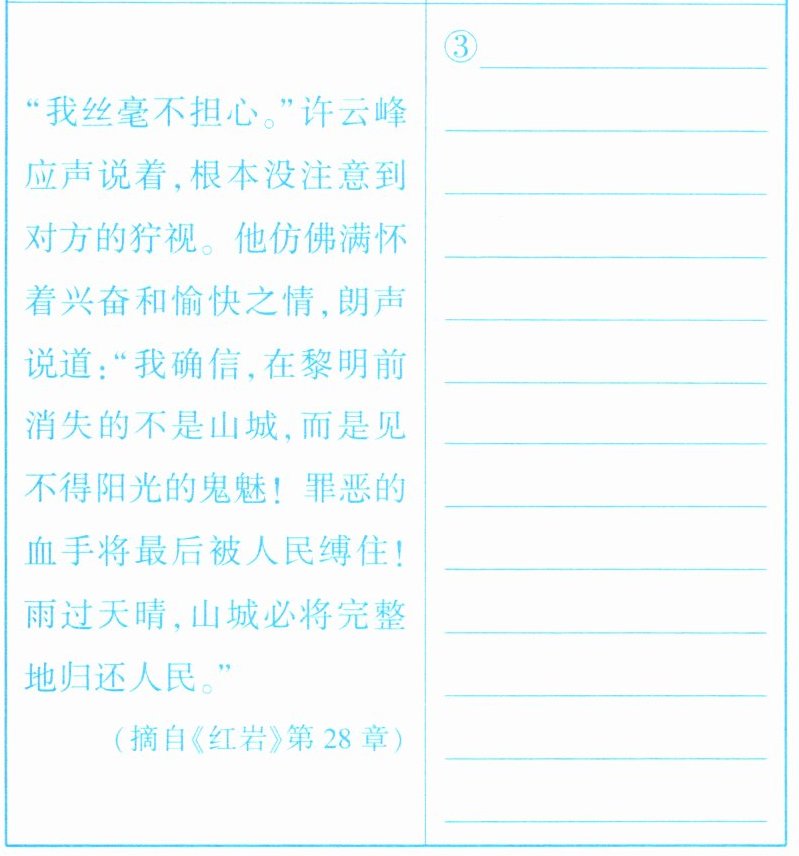 “我丝毫不担心。”许云峰
应声说着,根本没注意到
对方的狞视。他仿佛满怀
着兴奋和愉快之情,朗声
说道:“我确信,在黎明前
消失的不是山城,而是见
不得阳光的鬼魅!罪恶的
血手将最后被人民缚住!
雨过天晴,山城必将完整
地归还人民。”
(摘自《红岩》第 28 章)
③